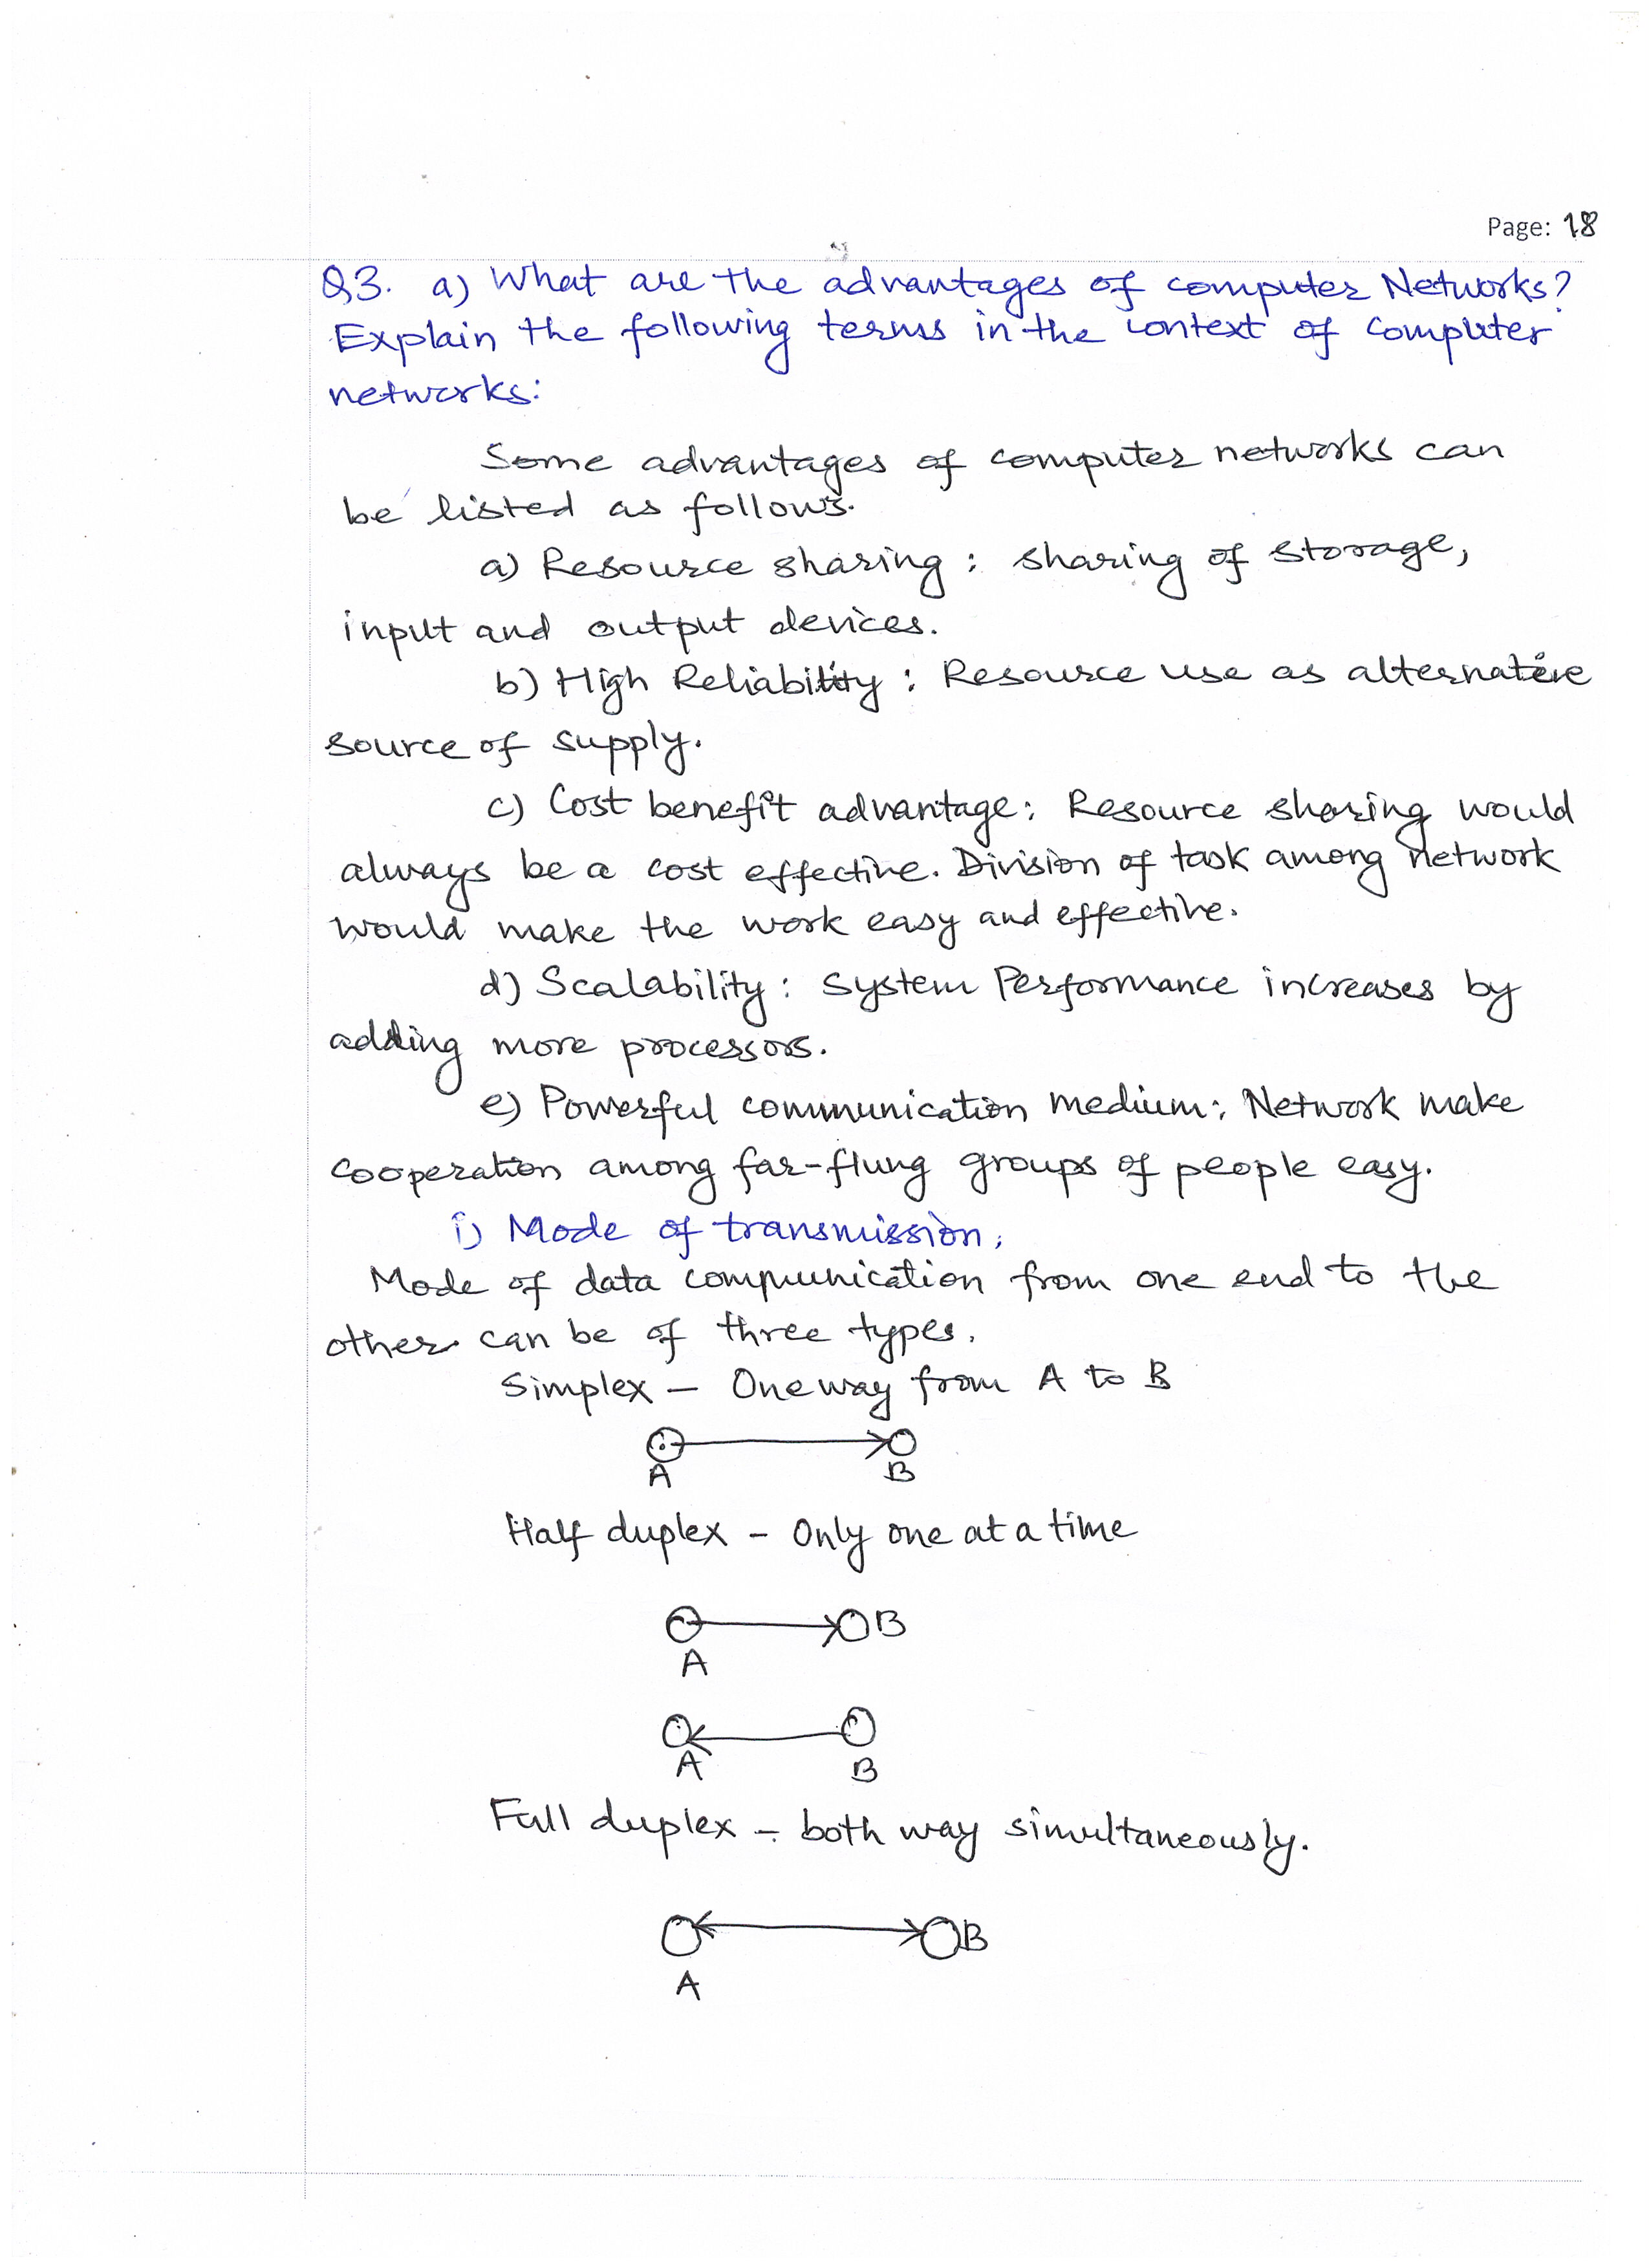 Page: 18
Q3. a) What are the advantages of computer Networks?
Explain the following terms in the context of computer
networks:
Some advantages of computer networks can
be listed as follows.
a) Resource sharing : sharing of storage,
input and output devices.
b) High Reliability : Resource use as alternative
source of supply.
c) Cost benefit advantage: Resource sharing would
always be a cost effective. Division of task among network
would make the work easy and effective.
d) Scalability : System Performance increases by
adding more processors.
e) Powerful communication medium: Network make
cooperation among far-flung groups of people easy.
i) Mode of transmission;
Mode of data communication from one end to the
other can be of three types.
Simplex - One way from A to B
A B
Half duplex - Only one at a time
B
A
A
B
Full duplex - both way simultaneously.
B
A